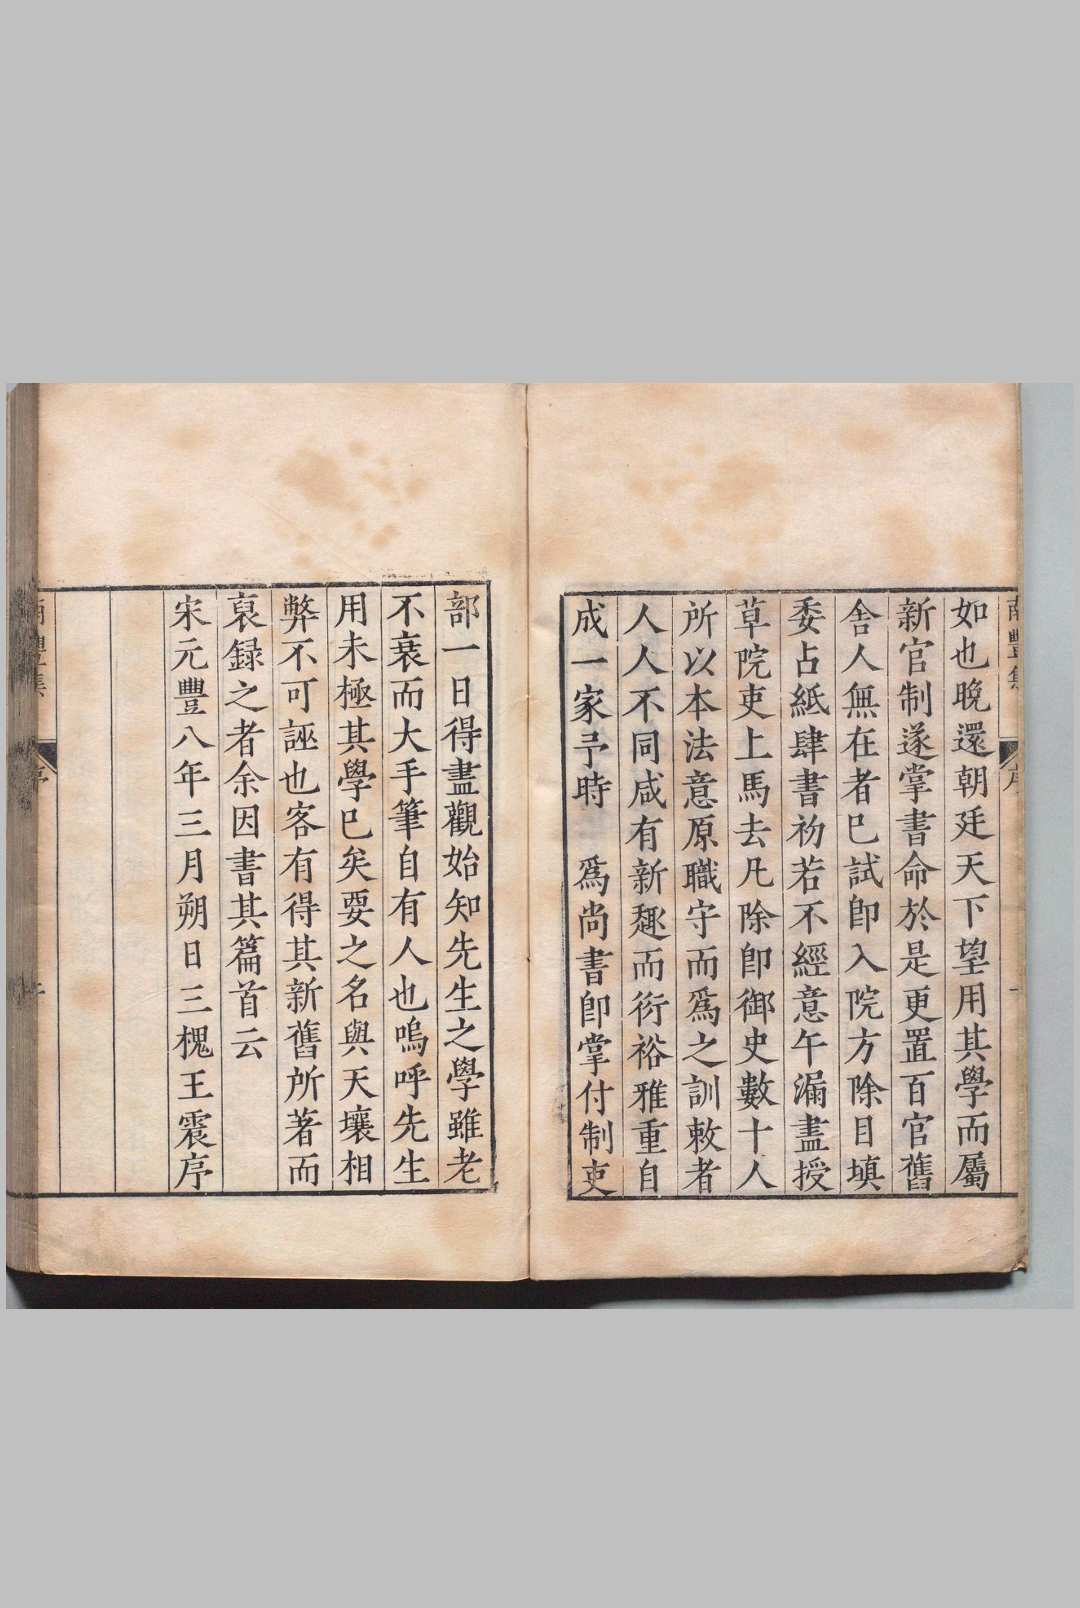 如也晚還朝廷天下望用其學而屬
新官制遂掌書命於是更置百官舊
舍人無在者巳試即入院方除目填
委占紙肆書初若不經意午漏盡授
草院吏上馬去凡除即御史數十人
所以本法意原職守而爲之訓敕者
人人不同咸有新趣而衍裕雅重自
成一家予時 爲尚書即掌付制吏
部一日得盡觀始知先生之學雖老
不衰而大手筆自有人也嗚呼先生
用未極其學巳矣要之名與天壤相
弊不可誣也客有得其新舊所著而
裒録之者余因書其篇首云
宋元豐八年三月朔日三槐王震序